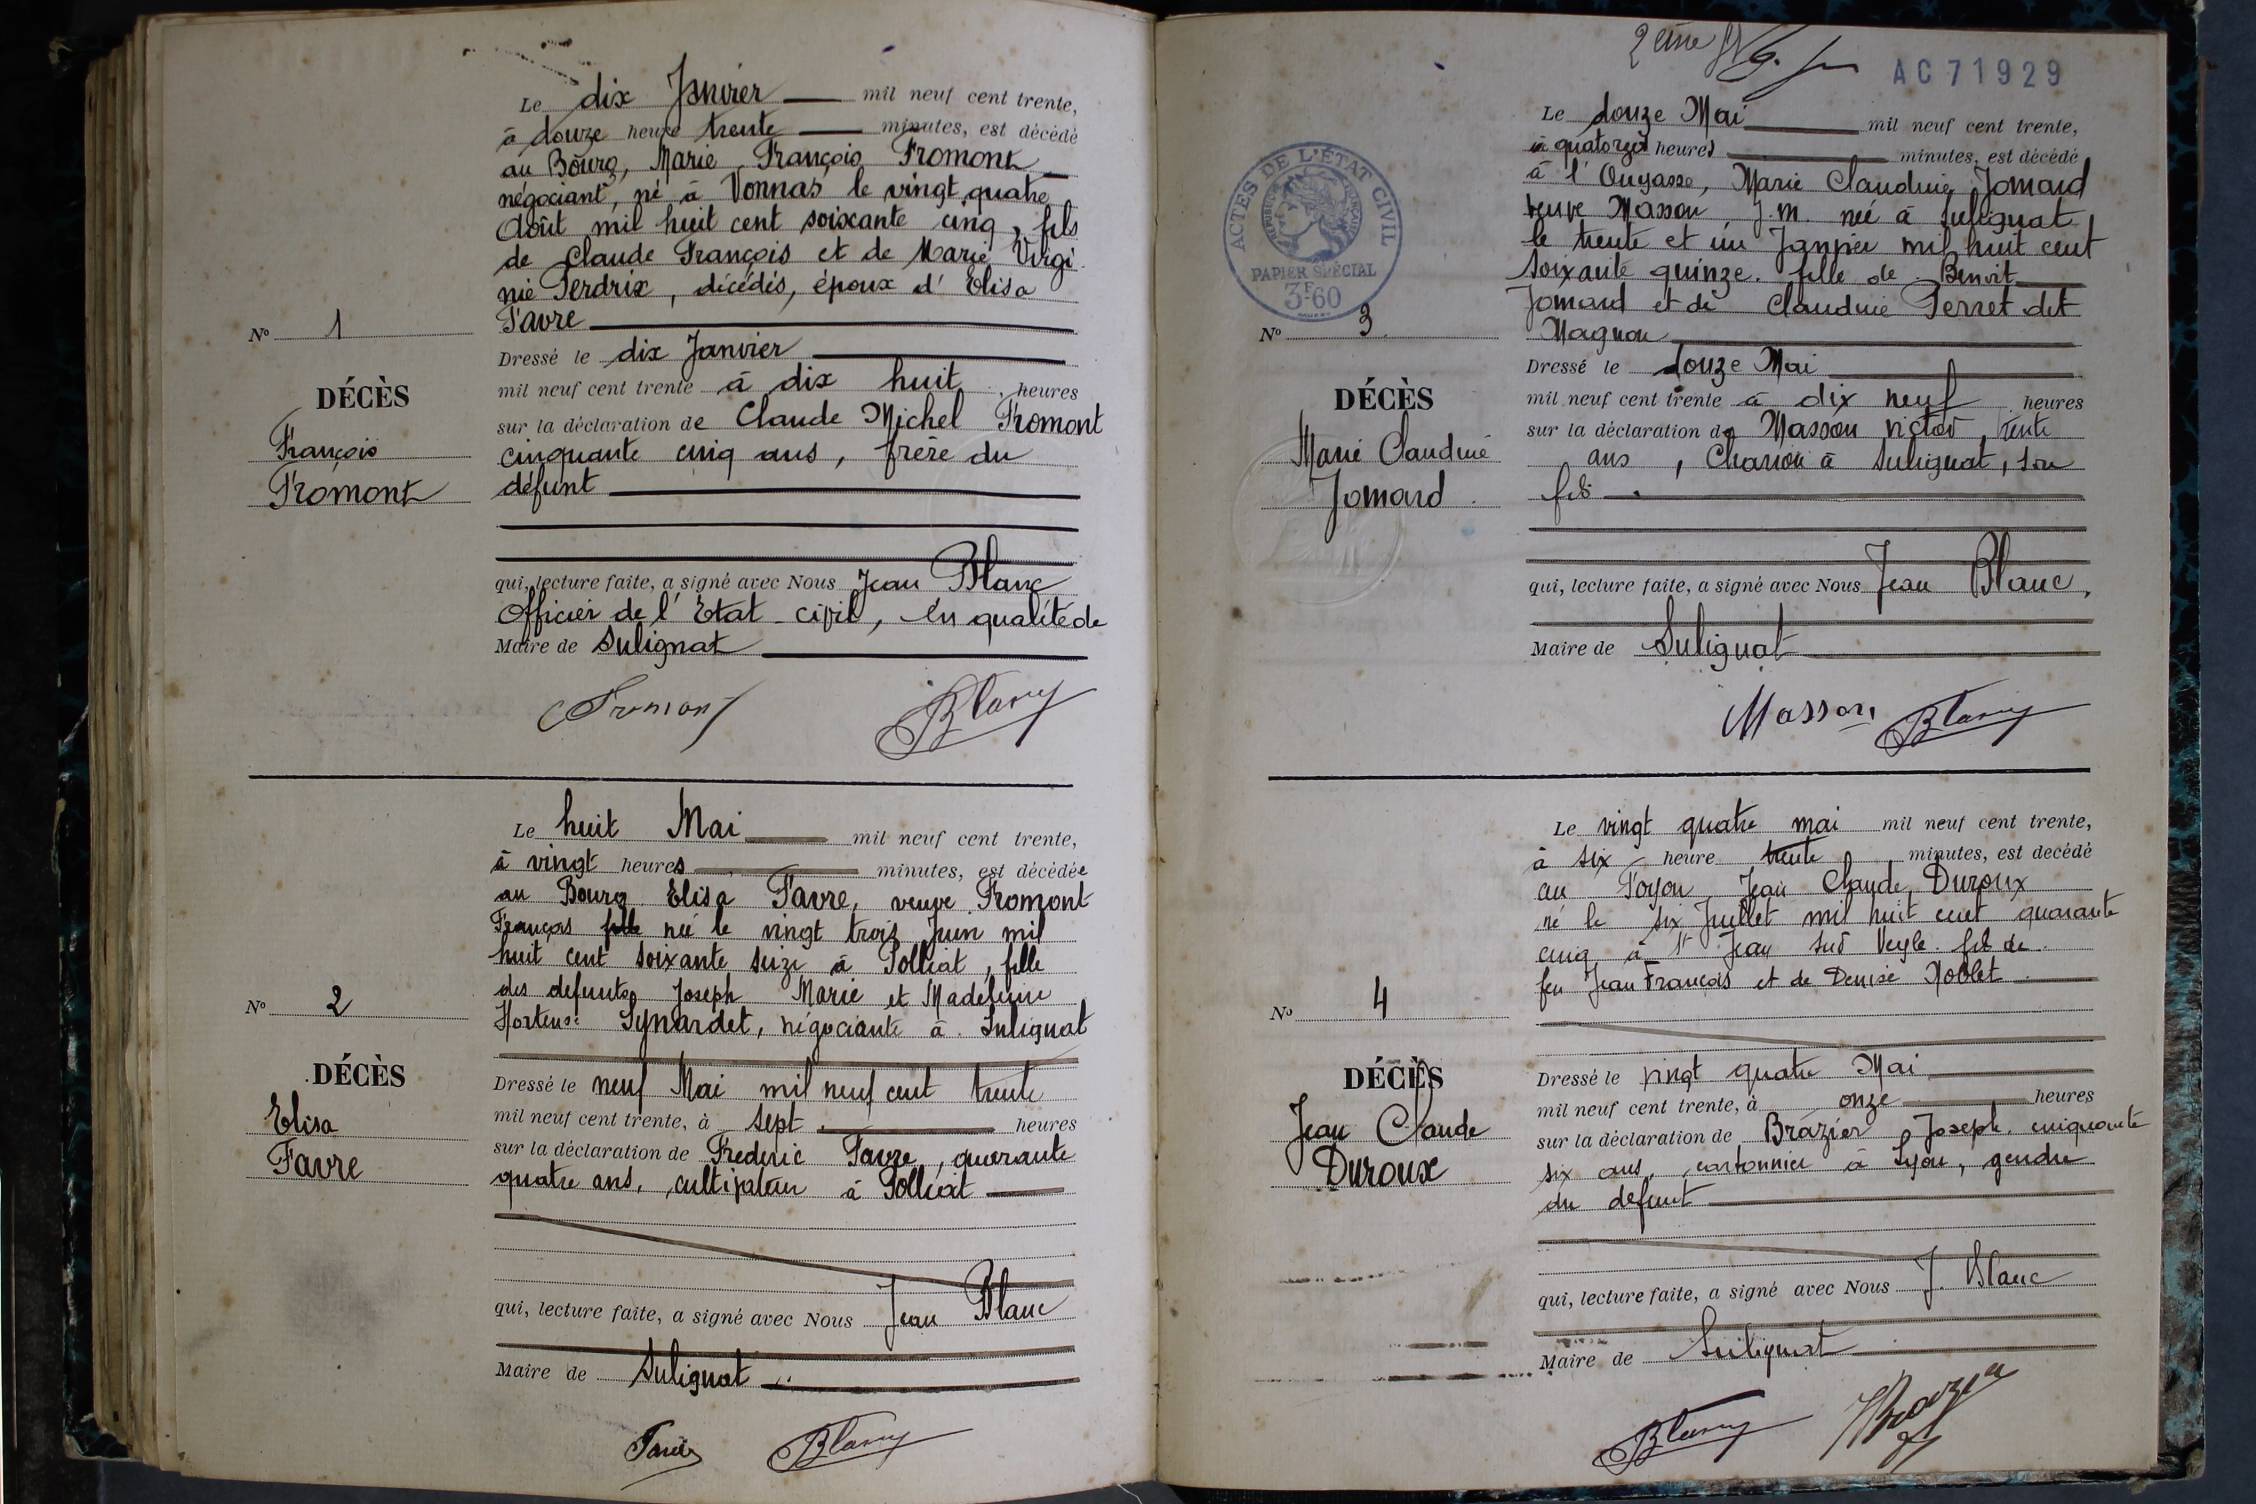 Le dix Janvier mil neuf cent trente,
à douze heure trente minutes, est décédé
au Bourg, Marie François Fromont
négociant, né à Vonnas le vingt quatre
Août mil huit cent soixante cinq, fils
de Claude François et de Marie Virgi
nie Perdrix, décédés, époux d'Elisa
Favre
Nº 1
DÉCÈS
François
Fromont
Dressé le dix Janvier
mil neuf cent trente à dix huit heures
sur la déclaration de Claude Michel Fromont
cinquante cinq ans, frère du
défunt
qui, lecture faite, a signé avec Nous Jean Blanc
Officier de l'Etat-civil, en qualité de
Maire de Sulignat
Fromont Blanc
Le huit Mai mil neuf cent trente,
à vingt heures minutes, est décédée
au Bourg Elisa Favre, veuve Fromont
François née le vingt trois Juin mil
huit cent soixante seize à Polliat, fille
des defunts Joseph Marie et Madeleine
Hortense Synardet, négociante à Sulignat
Nº 2
DÉCÈS
Elisa
Favre
Dressé le neuf Mai mil neuf cent trente
mil neuf cent trente, à sept heures
sur la déclaration de Frederic Favre, quarante
quatre ans, cultivateur à Polliat
qui, lecture faite, a signé avec Nous Jean Blanc
Maire de Sulignat
Favre Blanc
2ème
AC 71929
ACTES DE L'ÉTAT CIVIL
PAPIER SPÉCIAL
3F60
Le douze Mai mil neuf cent trente,
à quatorze heures minutes, est décédé
à l', Marie Claudine Jomard
veuve Masson J.M. née à Sulignat
le trente et un Janvier mil huit cent
soixante quinze. fille de Benoit
Jomard et de Claudine Perret dit
Magnon
Nº 3
DÉCÈS
Marie Claudine
Jomard
Dressé le douze Mai
mil neuf cent trente à dix neuf heures
sur la déclaration de Masson Victor, trente
ans, Charron à Sulignat, son
fils
qui, lecture faite, a signé avec Nous Jean Blanc,
Maire de Sulignat
Masson Blanc
Le vingt quatre mai mil neuf cent trente,
à six heure trente minutes, est décédé
au Foyon Jean Claude Duroux
né le six Juillet mil huit cent quarante
cinq à St Jean sur Veyle. fils de
feu Jean François et de Denise Noblet
Nº 4
DÉCÈS
Jean Claude
Duroux
Dressé le vingt quatre Mai
mil neuf cent trente, à onze heures
sur la déclaration de Brazier Joseph. cinquante
six ans, cartonnier à Lyon, gendre
du défunt
qui, lecture faite, a signé avec Nous J. Blanc
Maire de Sulignat
Blanc Brazier